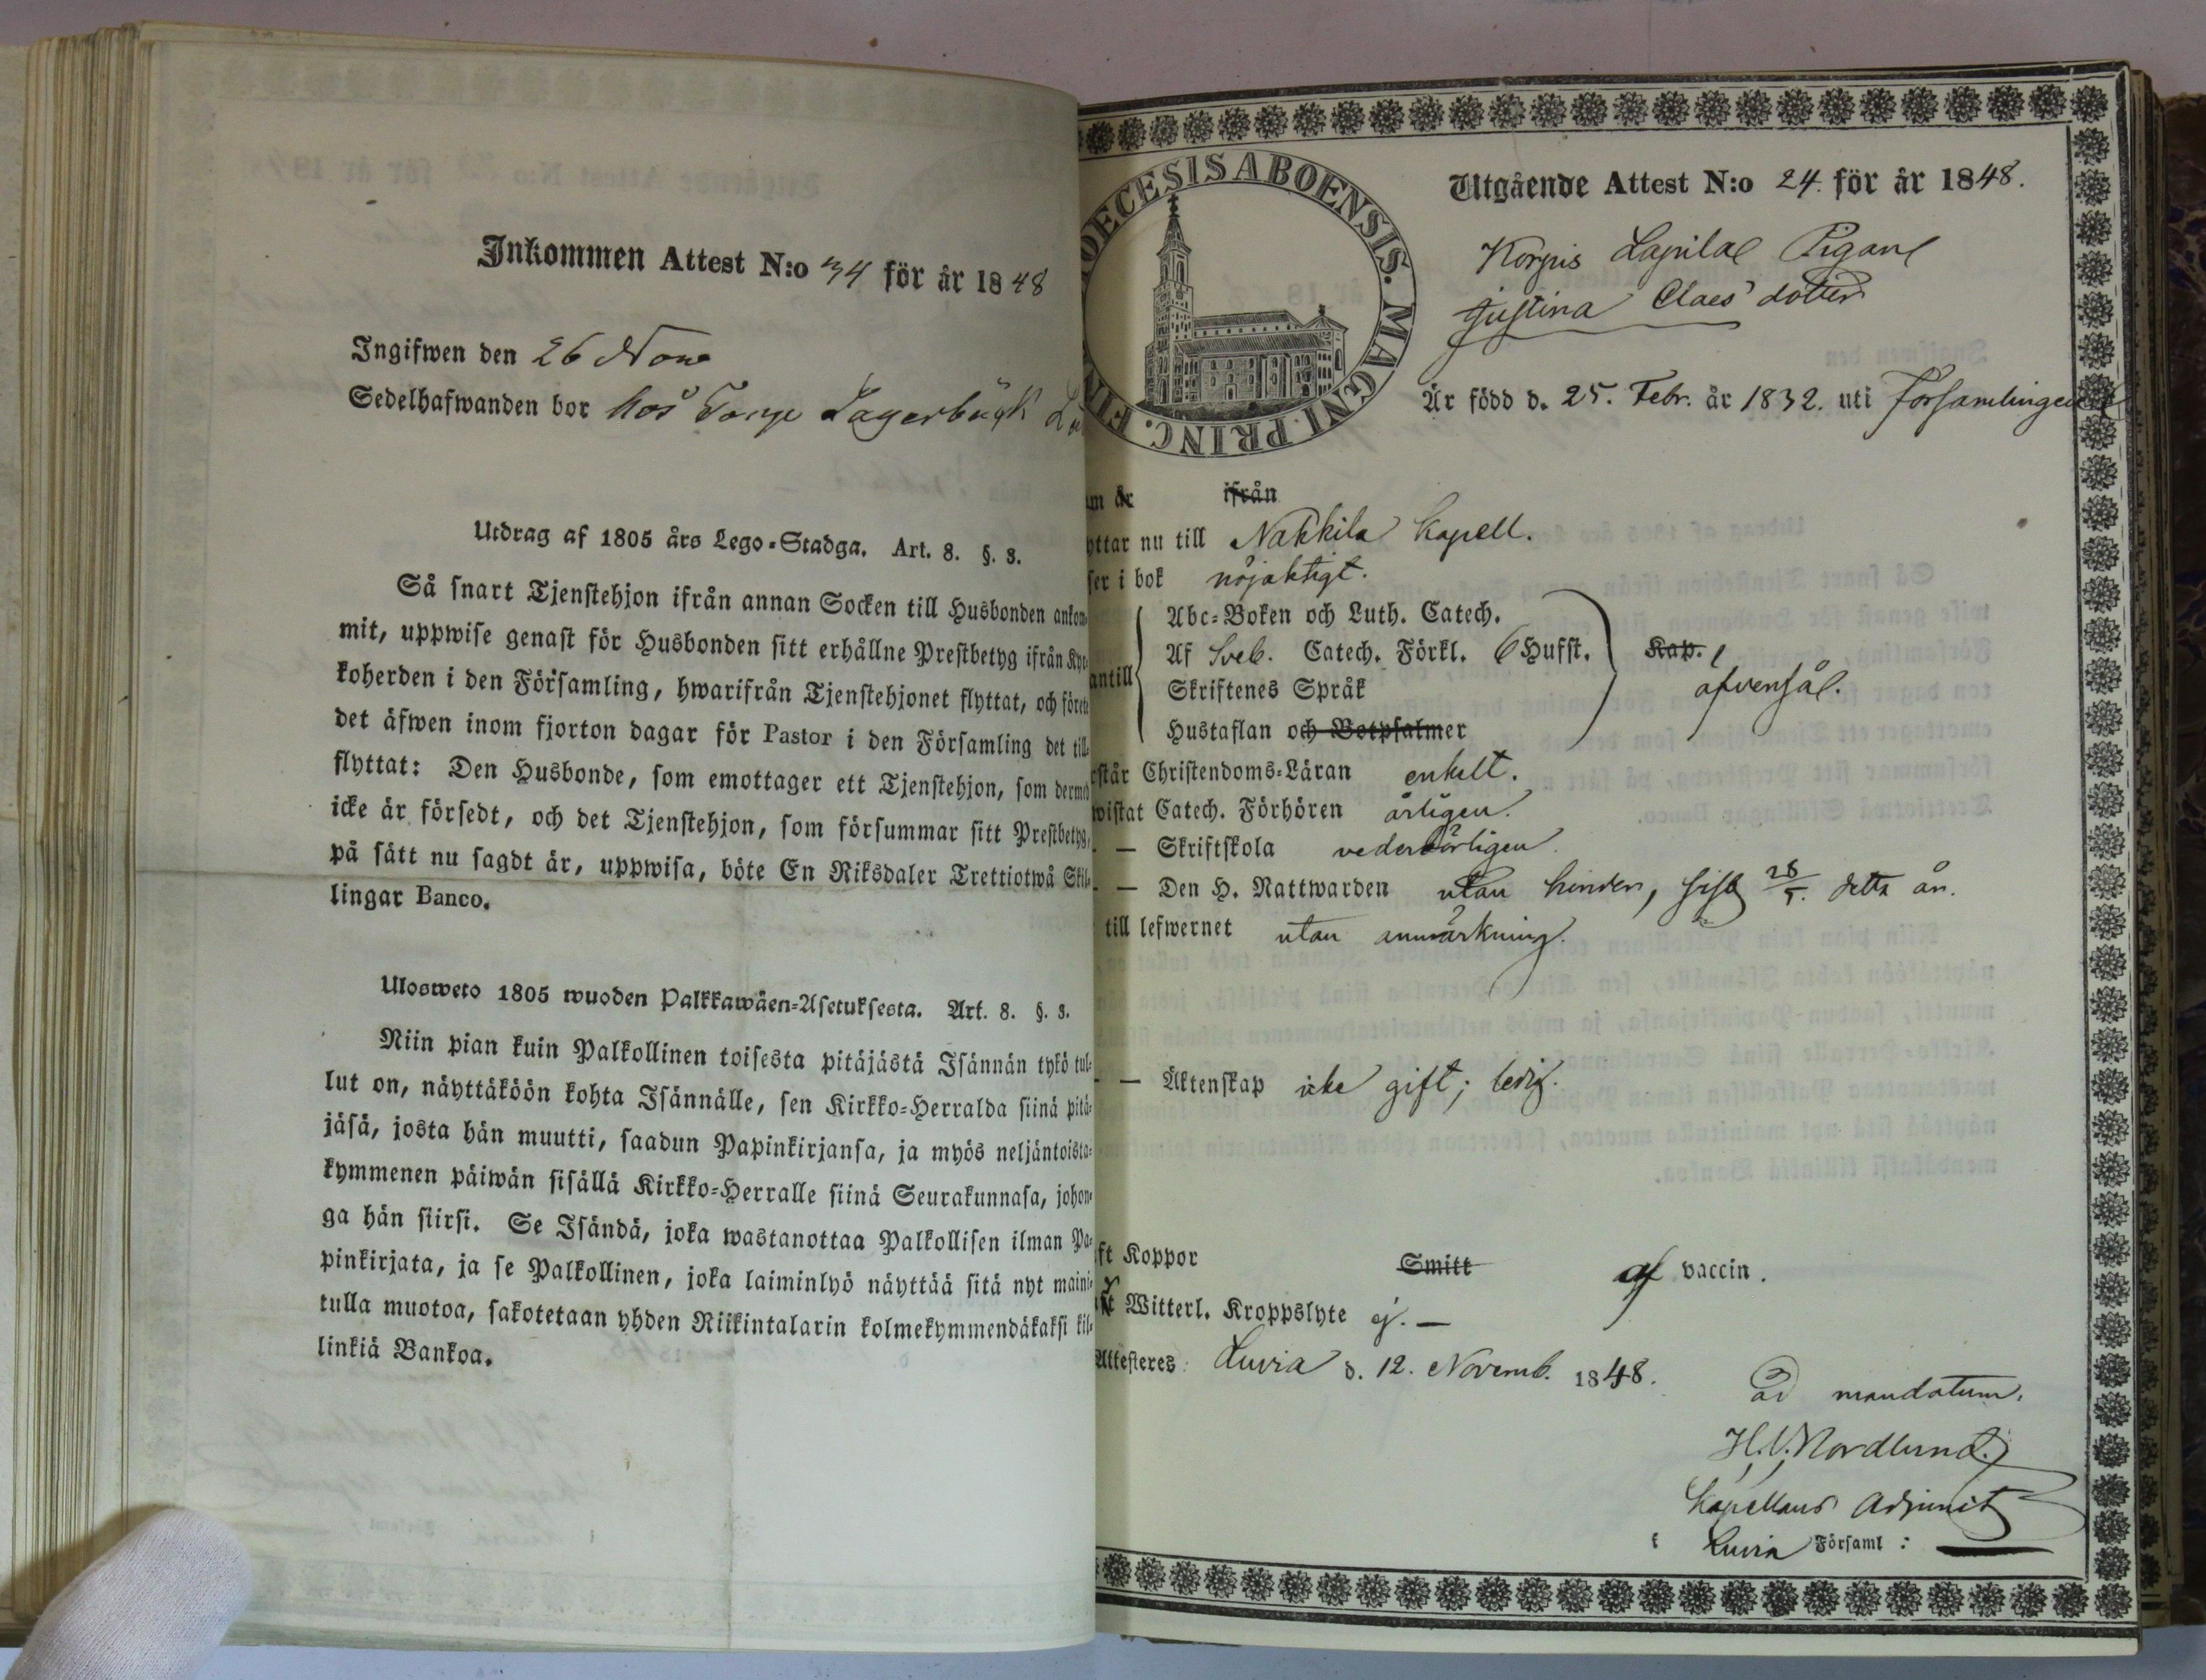 Inkommen Attest N:o 34 för år 1848
Ingifwen den 26 Nov
Sedelhafwanden bor hos
Utdrag af 1805 års Lego-Stadga. Art. 8. §. 3.
Så snart Tjenstehjon ifrån annan Socken till Husbonden ankom-
mit, uppwise genast för Husbonden sitt erhållne Prestbetyg ifrån Kyr-
koherden i den Församling, hwarifrån Tjenstehjonet flyttat, och förete
det äfwen inom fjorton dagar för Pastor i den Församling det till-
flyttat: Den Husbonde, som emottager ett Tjenstehjon, som dermed
icke är försedt, och det Tjenstehjon, som försummar sitt Prestbetyg,
på sätt nu sagdt är, uppwisa, böte En Riksdaler Trettiotwå Skil-
lingar Banco.
Ulosweto 1805 wuoden Palkkawäen-Asetuksesta. Art. 8. §. 3.
Niin pian kuin Palkollinen toisesta pitäjästä Isännän tykö tul-
lut on, näyttäköön kohta Isännälle, sen Kirkko-Herralda siinä pitä-
jäsä, josta hän muutti, saadun Papinkirjansa, ja myös neljäntoista-
kymmenen päiwän sisällä Kirkko-Herralle siinä Seurakunnasa, johon-
ga hän siirsi. Se Isändä, joka wastanottaa Palkollisen ilman Pa-
pinkirjata, ja se Palkollinen, joka laiminlyö näyttää sitä nyt maini-
tulla muotoa, sakotetaan yhden Riikintalarin kolmekymmendäkaksi kil-
linkiä Bankoa.
OECESIS ABOENSIS. MAGNI PRINC. FIN
Utgående Attest N:o 24. för år 1848.
Korpis Lapila Pigan
Justina Claes dotter
Är född d. 25. Febr. år 1832. uti Församlingen
m är ifrån
yttar nu till Nakkila Kapell.
ser i bok nöjaktigt.
Abc-Boken och Luth. Catech.
Af Sveb. Catech. Förkl. 6 Hufst. Kap.
antill Skriftenes Språk äfvenså.
Hustaflan och Botpsalmer
rstår Christendoms-Läran enkelt.
wistat Catech. Förhören årligen.
— Skriftskola vederbörligen.
— Den H. Nattwarden utan hinder, sist 28/5. detta år.
till lefwernet utan anmärkning.
— Äktenskap icke gift; ledig.
ft Koppor Smitt af vaccin.
Witterl. Kroppslyte ej. —
Attesteres: Luvia d. 12. Novemb. 1848.
ad mandatum.
H. V. Nordlund.
Kapellans Adjunct
i Luvia Församl: